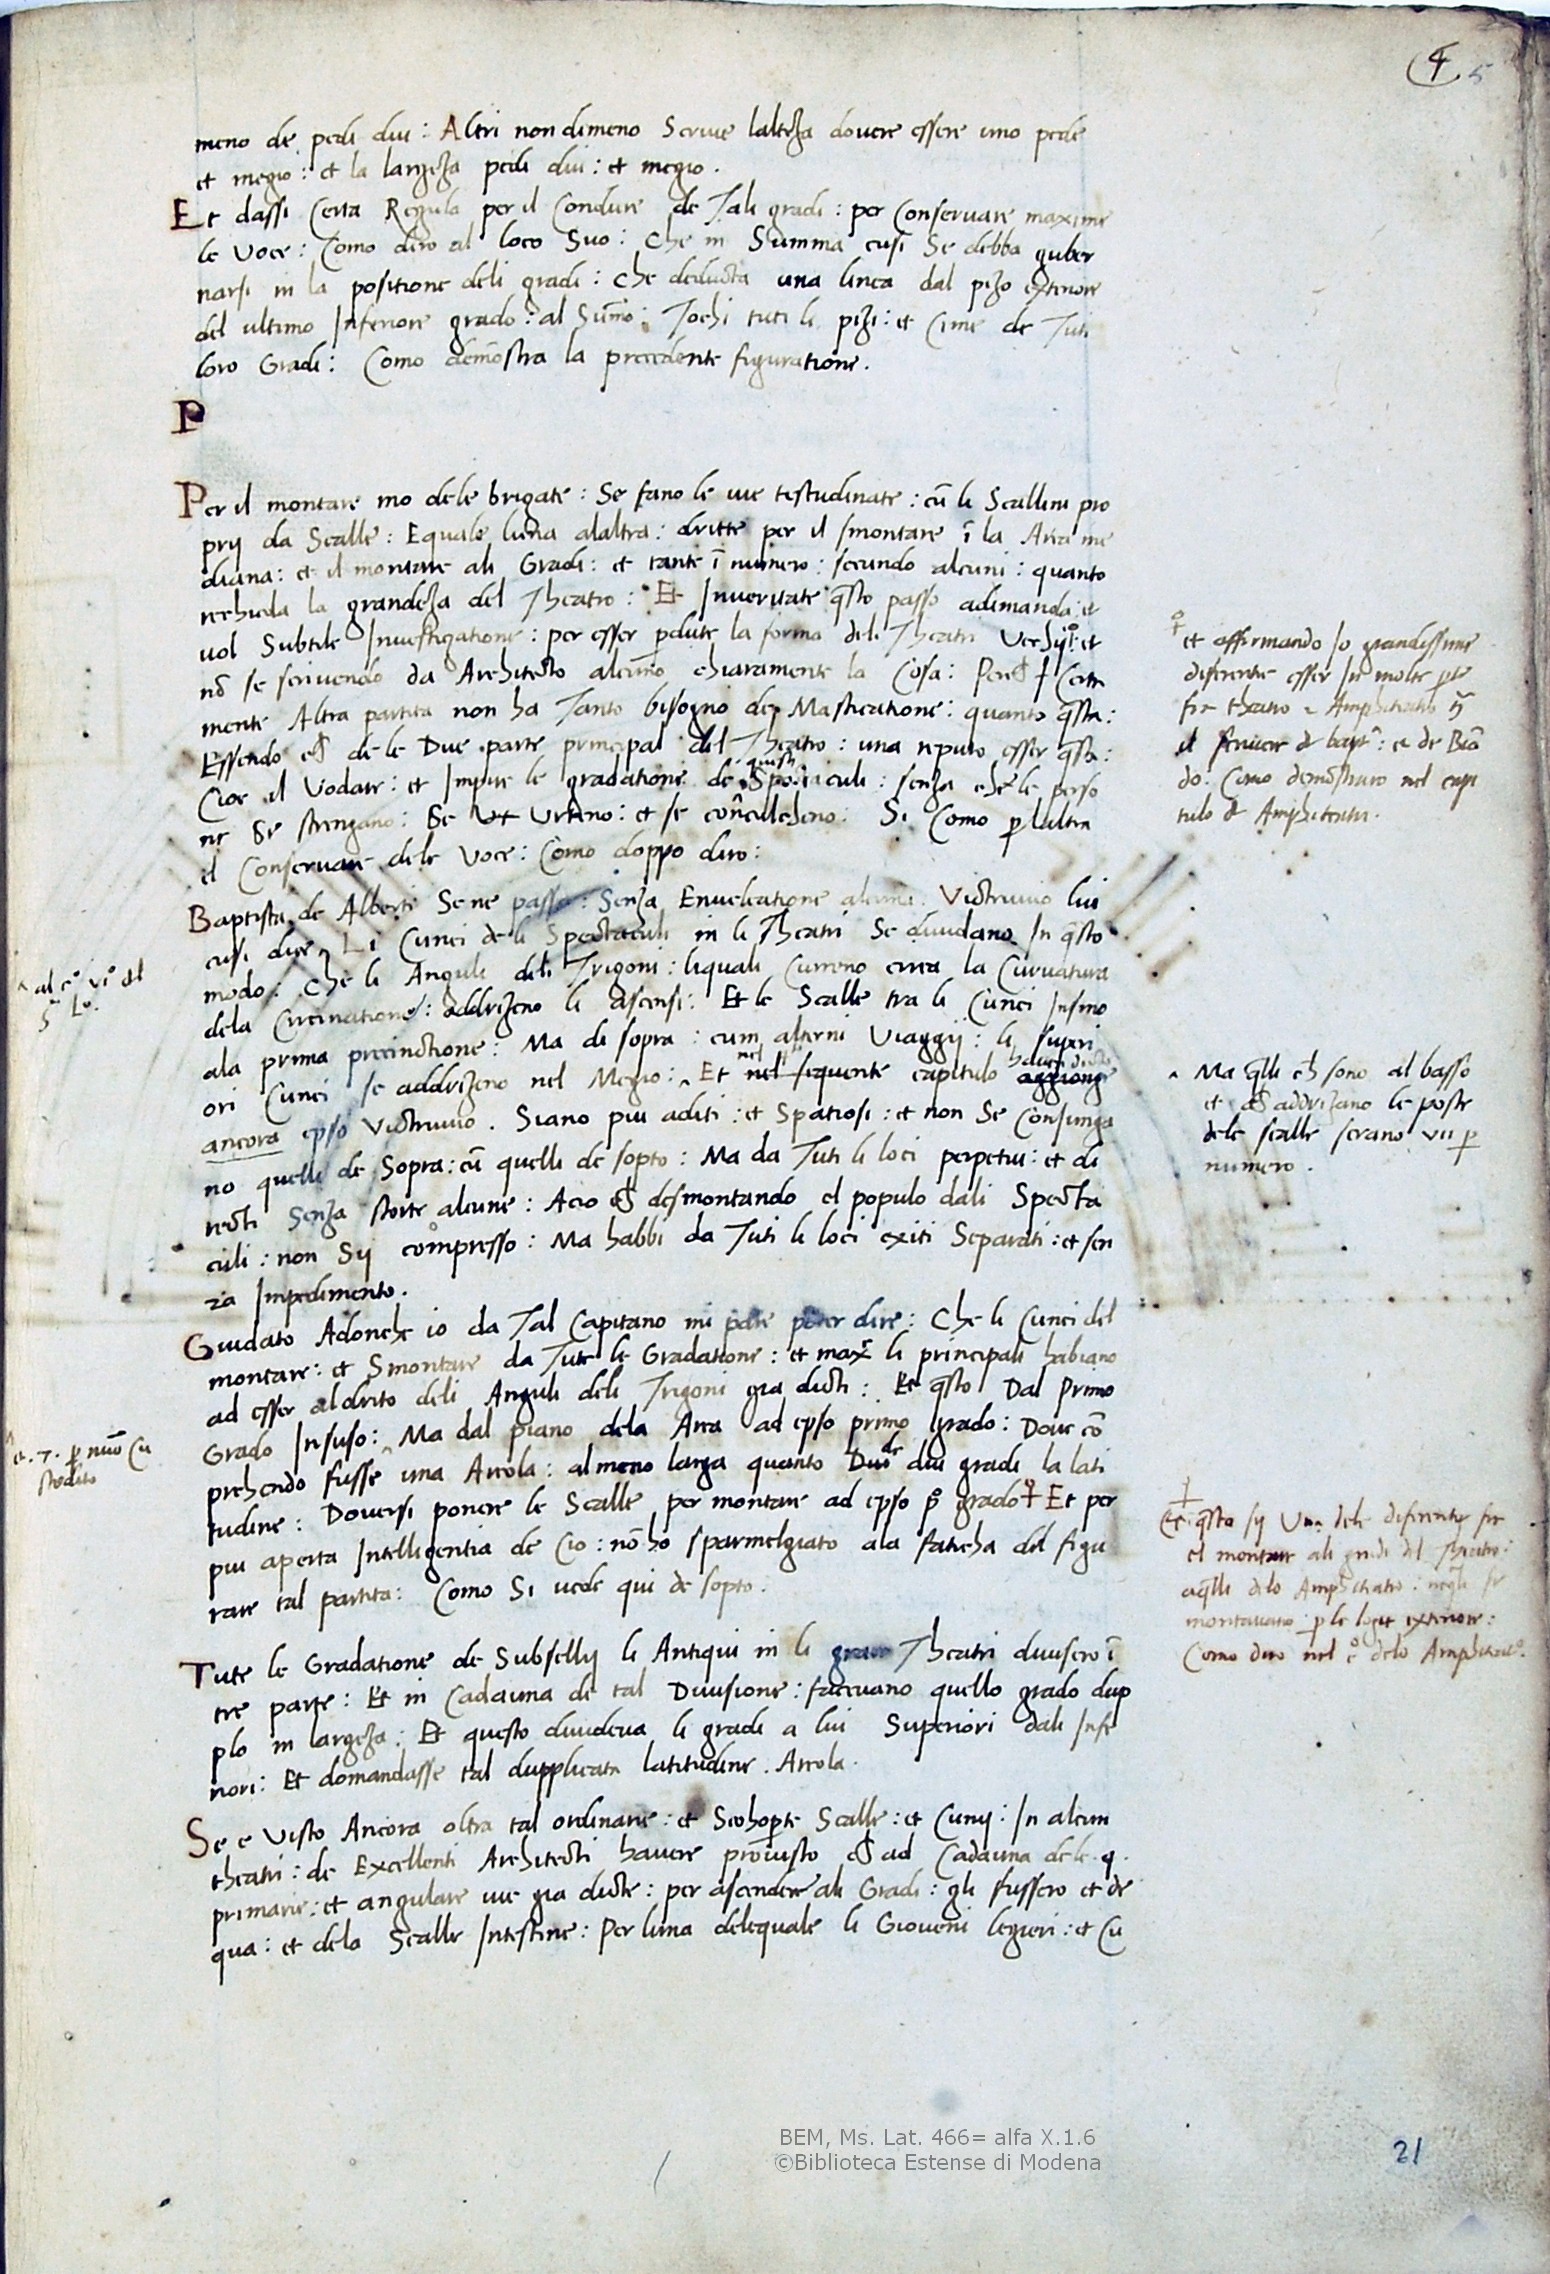 4 5
meno de pedi dui : Altri non dimeno Scriue lalteza douere essere uno pede
et megio : et la largeza pedi dui : et megio .
Et dassi Certa Regula per il Condure de Tali gradi : per Conseruare maxime
le Voce : Como diro al loco Suo : Che in Summa cusi Se debba guber
narsi in la positione deli gradi : che deducta una linea dal pizo exteriore
del ultimo Inferiore grado : al Sum̄o : Tochi tuti le pizi : et Cime de Tuti
loro Gradi : Como demōstra la precedente figuratione .
P
Per il montare mo dele brigate : Se fano le uie testudinate : cū li Scallini pro
prij da Scalle : Equale luna alaltra : dritte per il smontare ī la Area me
diana : et il montare ali Gradi : et tante ī numero : secundo alcuni : quanto
rechieda la grandeza del Theatro : Et Inueritate q̄sto passo adimanda : et
uol Subtile Inuestigatione : per esser p̄dute la forma deli Theatri Vechij : et
nō se scriuendo da Architecto alcuno chiaramente la Cosa : Certa
mente Altra partita non ha Tanto bisogno de Masticatione : quanto q̄sta :
Essendo ch̄ de le Due parte principal del Theatro : una reputo esser q̄sta :
Cioe il Vodare : et Impire le gradatione de questi Spectaculi : senza che le perso
ne Se strengano : Se Urteno : et se conculcheno : Si Como p laltra
el Conseruare dele Voce : Como doppo diro :
Baptista de Alberti Se ne passa : Senza Enucleatione alcuna . Victruuio lui
cusi dice Li Cunei de li Spectaculi in le Theatri Se diuidano In q̄sto
modo : Che li Anguli deli Trigoni : liquali Curreno circa la Curuatura
dela Circinatione : addrizeno li ascensi : Et le Scalle tra le Cunei Insino
ala prima precinctione : Ma di sopra : cum alterni Viaggij : li superi
ori Cunei se addrizeno nel Megio : ^ Et nel sequente capitulo aggionge
ancora epso Victruuio . Siano piu aditi : et Spatiosi : et non Se Consunga
no quelli de Sopra : cū quelli de sopto : Ma da Tuti li loci perpetui : et di
recti Senza storte alcune : Acio ch̄ desmontando el populo dali Specta
culi : non Sij compresso : Ma habbi da Tuti le loci exiti Separati : et sen
za Impedimento .
Guidato Adonche io da Tal Capitano mi pare poter dire : Che li Cunei del
montare : et Smontare da Tute le Gradatione : et max̄ li principali habiano
ad esser aldrito deli Anguli deli Trigoni gia dicti : Et q̄sto Dal Primo
Grado Insuso : ^ Ma dal piano dela Area ad epso primo grado : Doue cō
prehendo fusse una Areola : almeno larga quanto de dui gradi la lati
tudine : Douersi ponere le Scalle per montare ad epso p̄º grado Et per
piu aperta Intelligentia de Cio : nō ho sparmelgiato ala faticha del figu
rare tal partita : Como Si uede qui de sopto .
Tute le Gradatione de Subsellij li Antiqui in li Theatri diuisero ī
tre parte : Et in Cadauna de tal Diuisione : faceuano quello grado dup
plo in largeza : Et questo diuideua li gradi a lui Superiori dali Infe
riori : Et domandasse tal dupplicata latitudine . Areola .
Se e Visto Ancora oltra tal ordinarie : et Scohoperte Scalle : et Cunij : In alcun
theatri : de Excellenti Architecti hauere prouisto ch̄ ad Cadauna dele . q .
primarie : et angulare uie gia dicte : per ascendere ali Gradi : gli fussero et de
qua : et dela Scalle Intestine : Per luna delequale li Gioueni legieri : et Cu
et affirmando Io grandissime
diferentie esser In molte p̄te
fra theatro Amphiteatro
il scriuer d bapt̄ : e de Biō
do : Como demōstraro nel capi
tulo d Amphiteatri .
^ al cº viº del
5º Lº .
^ Ma q̄lli ch̄ sono al basso
et ch̄ addrizano le poste
dele scalle serano vii p
numero .
7 . p nūo Cu
stodito
Et q̄sto sij Una dele diferentie fra
el montare ali gradi del Theatro :
aq̄lli delo Amphiteatro : se
montauano p le logie exteriore :
Como diro nel cº delo Amphiteatrº .
BEM, Ms. Lat. 466= alfa X.1.6
©Biblioteca Estense di Modena
21